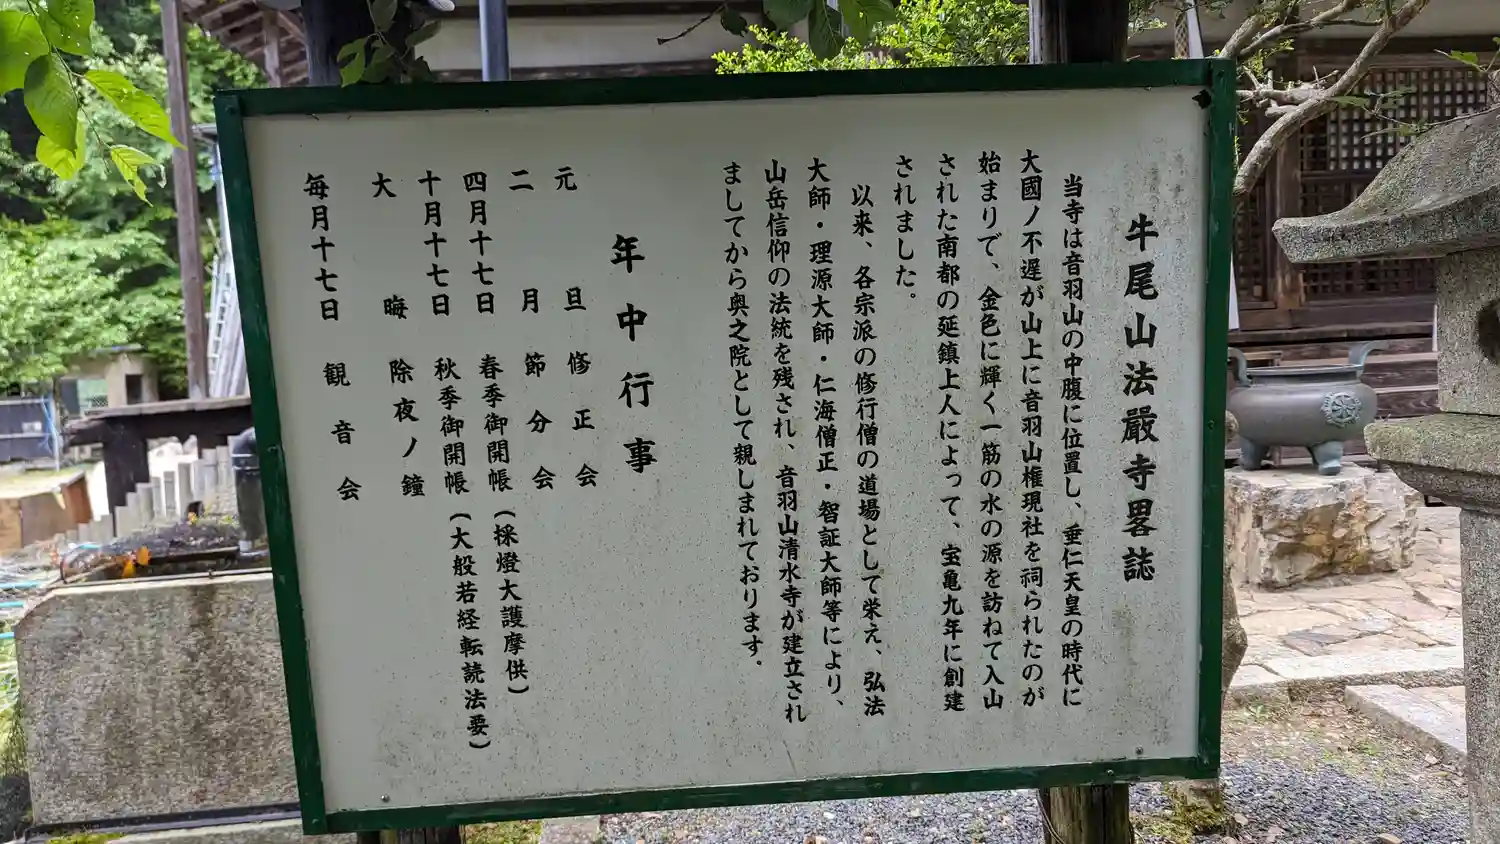 牛尾山法嚴寺畧誌
当寺は音羽山の中腹に位置し、垂仁天皇の時代に
大國ノ不遅が山上に音羽山権現社を祠られたのが
始まりで、金色に輝く一筋の水の源を訪ねて入山
された南都の延鎮上人によって、宝亀九年に創建
されました。
以来、各宗派の修行僧の道場として栄え、弘法
大師・理源大師・仁海僧正・智証大師等により、
山岳信仰の法統を残され、音羽山清水寺が建立され
ましてから奥之院として親しまれております.
年中行事
元旦 修正会
二月 節分会
四月十七日 春季御開帳(採燈大護摩供)
十月十七日 秋季御開帳(大般若経転読法要)
大晦 除夜ノ鐘
毎月十七日 観音会